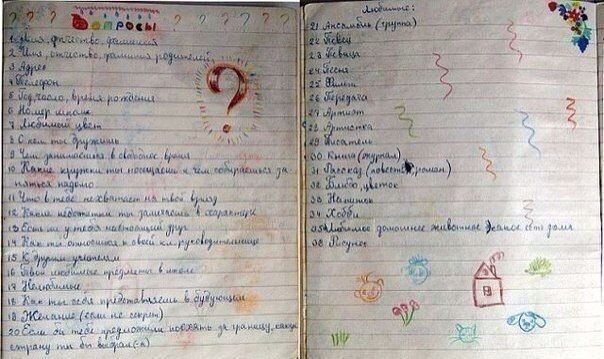 ? ? ? ? ? ? ? ? ?
Вопросы
1 Имя, отчество, фамилия
2. Имя, отчество, фамилия родителей
3 Адрес
4 Телефон
5 Год, число, время рождения
6 Номер школы
7 Любимый цвет
8 С кем ты дружишь
9 Чем занимаешься в свободное время
10 Какие кружки ты посещаешь и чем собираешься за-
няться надолго
11 Что в тебе не хватает на твой взгляд
12 Какие недостатки ты замечаешь в характере
13 Есть ли у тебя настоящий друг
14 Как ты относишься к своей кл. руководительнице
15 К другим учителям
16 Твои любимые предметы в школе
17 Нелюбимые
18 Как ты себя представляешь в будующем
19 Желание (если не секрет)
20 Если бы тебе предложили поехать за границу, какую
страну ты бы выбрал(-а)
?
Любимые:
21 Ансамбль (группа)
22 Певец
23 Певица
24 Песня
25 Фильм
26 Передача
27 Артист
28 Артистка
29 Писатель
30 Книга (журнал)
31 Рассказ (повесть, роман)
32 Блюдо, цветок
33 Напиток
34 Хобби
35 Любимое домашнее животное Какое есть дома
36 Рисунок